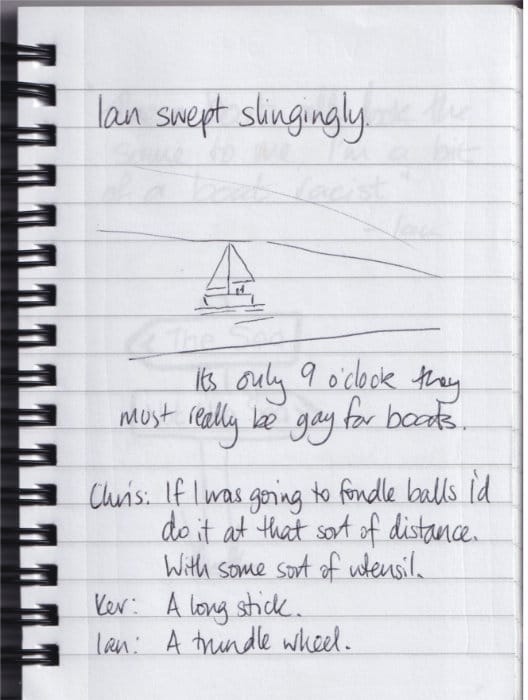 Ian swept slingingly.
Its only 9 o'clock they
must really be gay for boats.
Chris: If I was going to fondle balls I'd
do it at that sort of distance.
With some sort of utensil.
Kev: A long stick.
Ian: A trundle wheel.